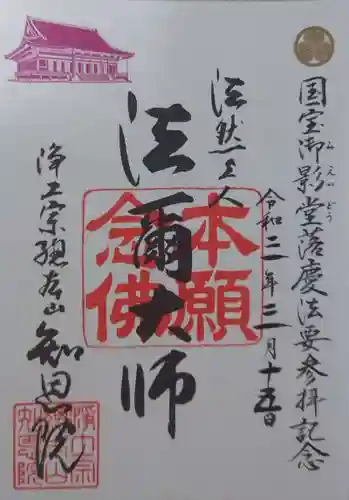 国宝御影堂落慶法要参拝記念
みえいどう
令和二年三月十五日
法然上人
法爾大師
本願
念佛
浄土宗総本山
知恩院